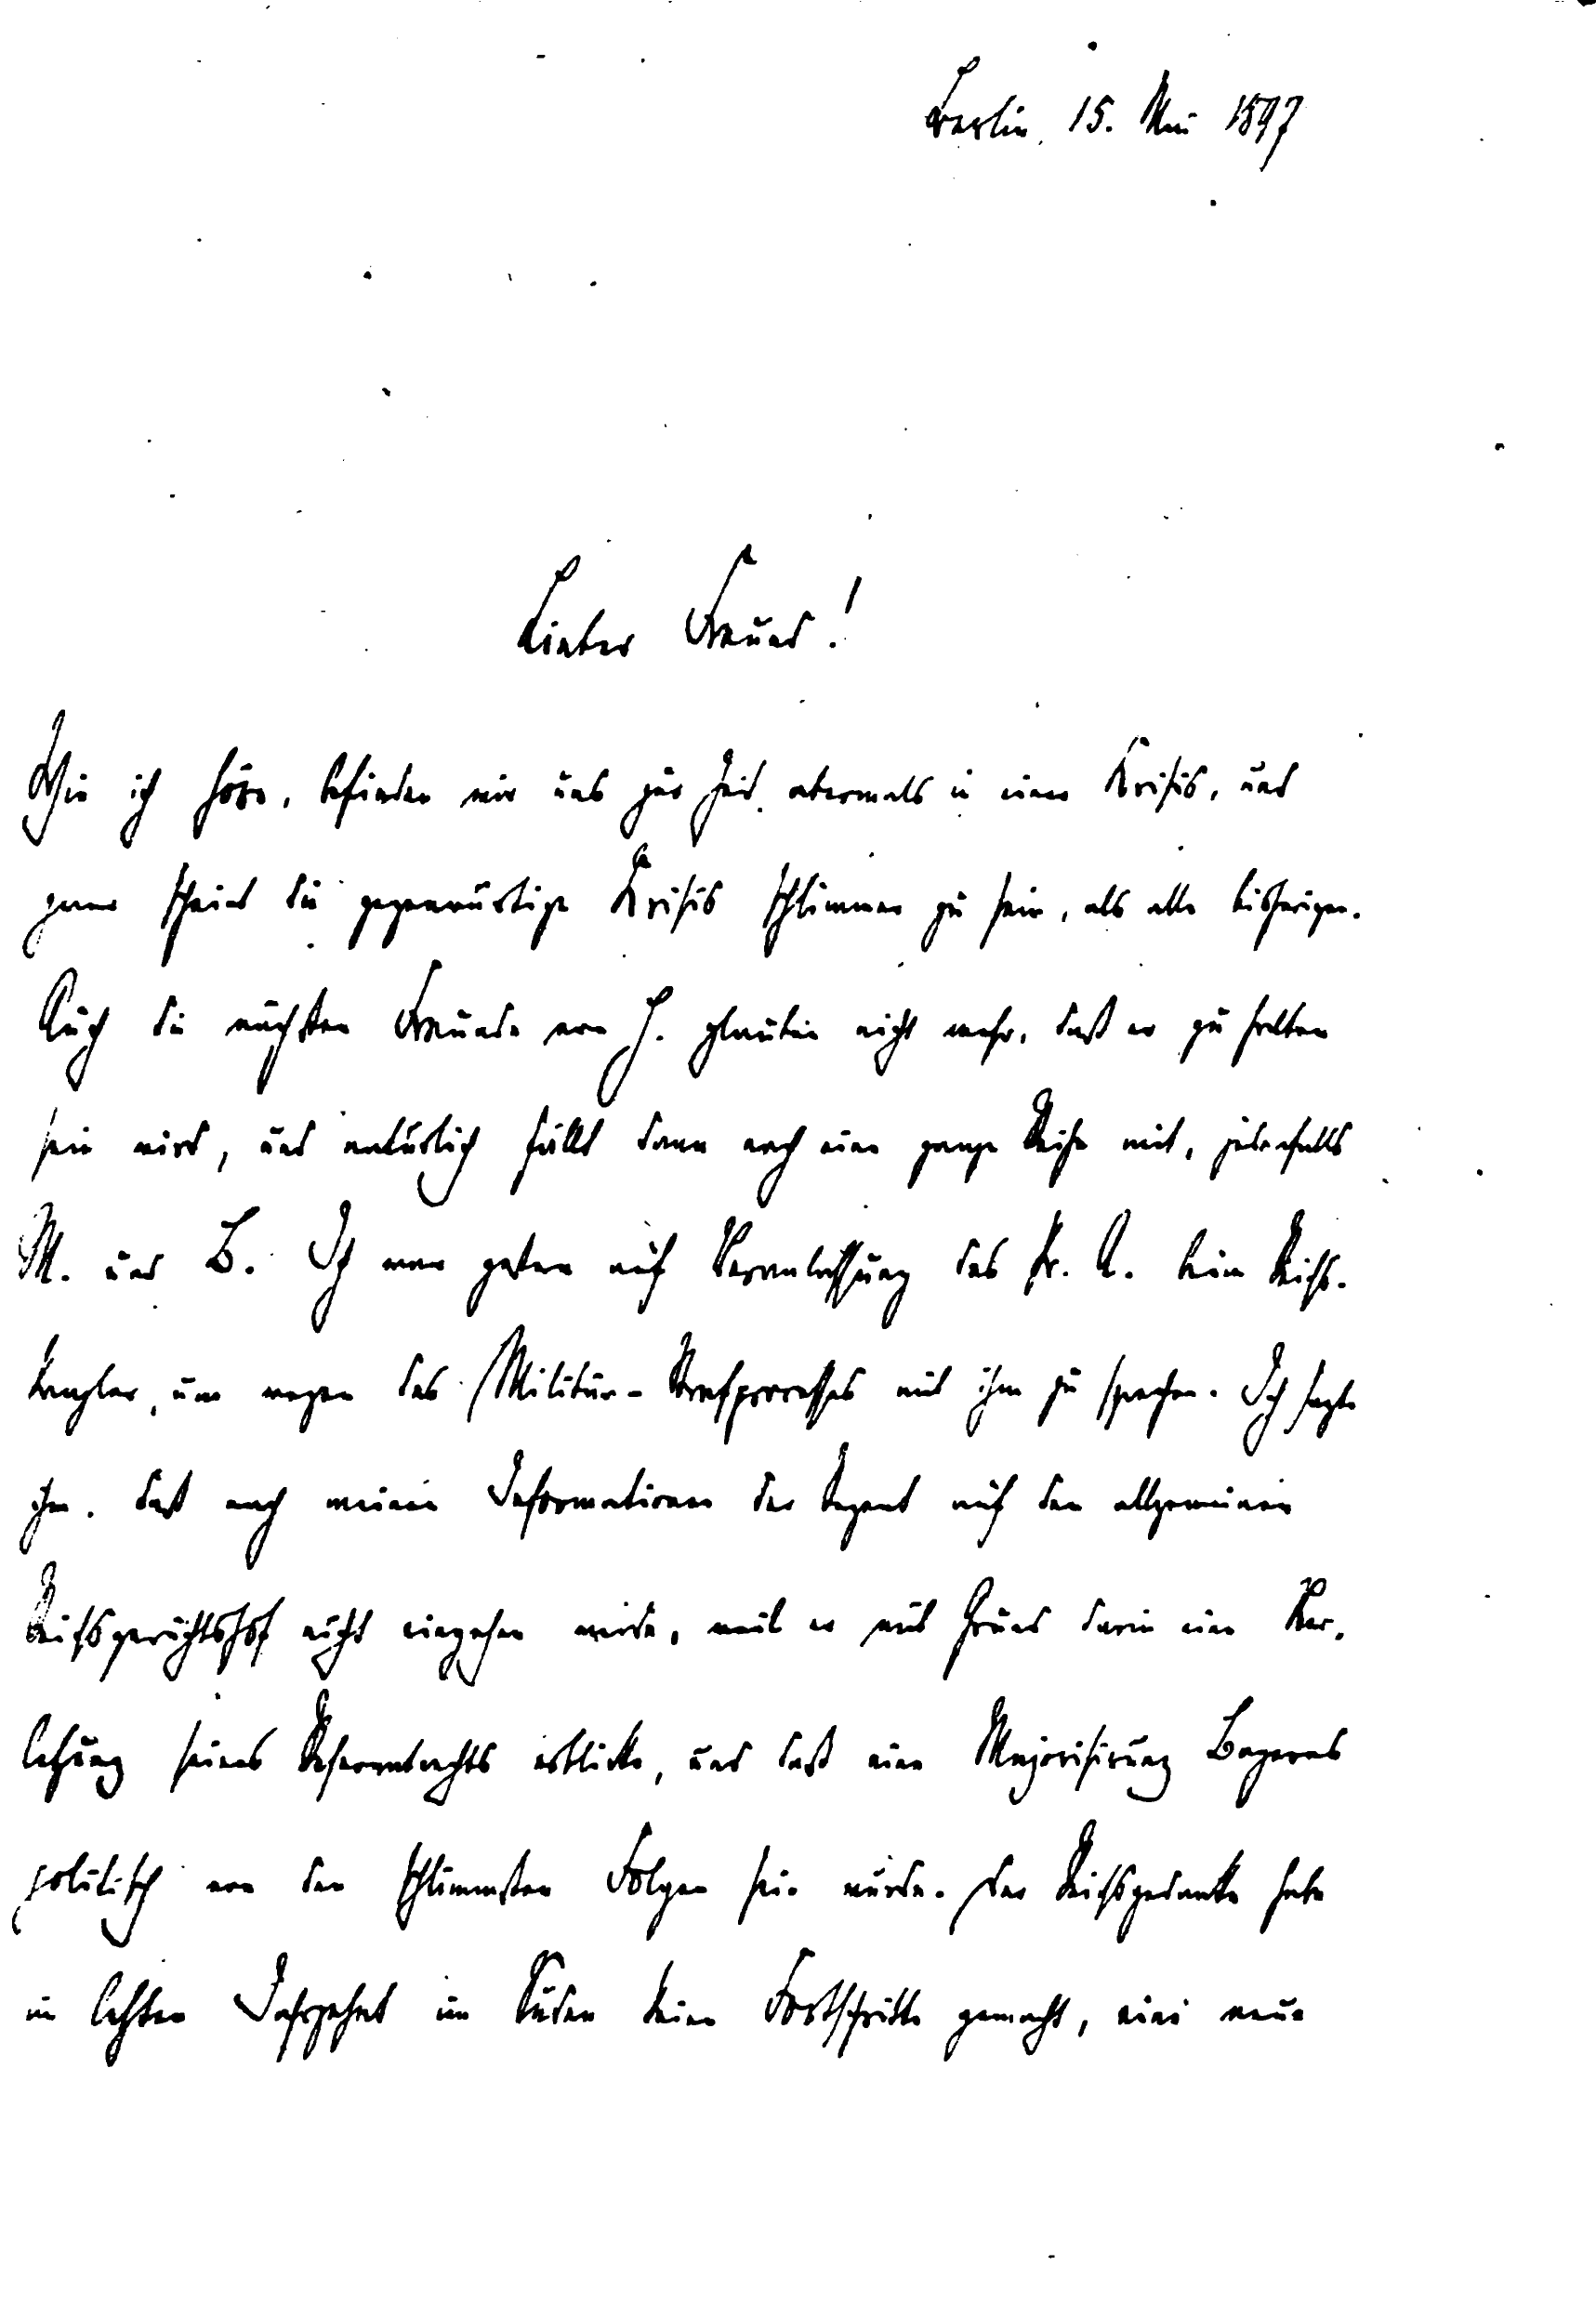 Berlin, 15. Mai 1897
Lieber Freund!
Wie ich höre, befinden wir uns zur Zeit abermals in einer Krisis, und
zwar scheint die gegenwärtige Krisis schlimmer zu sein, als alle bisherigen.
Auch die nächsten Freunde von H. glauben nicht mehr, daß er zu halten
sein wird, und natürlich fällt dann noch eine ganze Reihe mit, jedenfalls
M. und B. Ich war gestern auf Veranlassung des Pr. A. beim Reichs-
kanzler, um wegen des Militär-Strafprocesses mit ihm zu sprechen. Ich sagte
ihm, daß nach meinen Informationen der Regent auf den allgemeinen
Reichsgerichtshof nicht eingehen werde, weil er mit Grund darin eine Ver-
letzung seines Reservatrechts erblicke, und daß eine Majorisirung Bayerns
politisch von den schlimmsten Folgen sein würde. Der Reichsgedanke habe
im letzten Jahrzehnt im Süden keine Fortschritte gemacht, eine neue